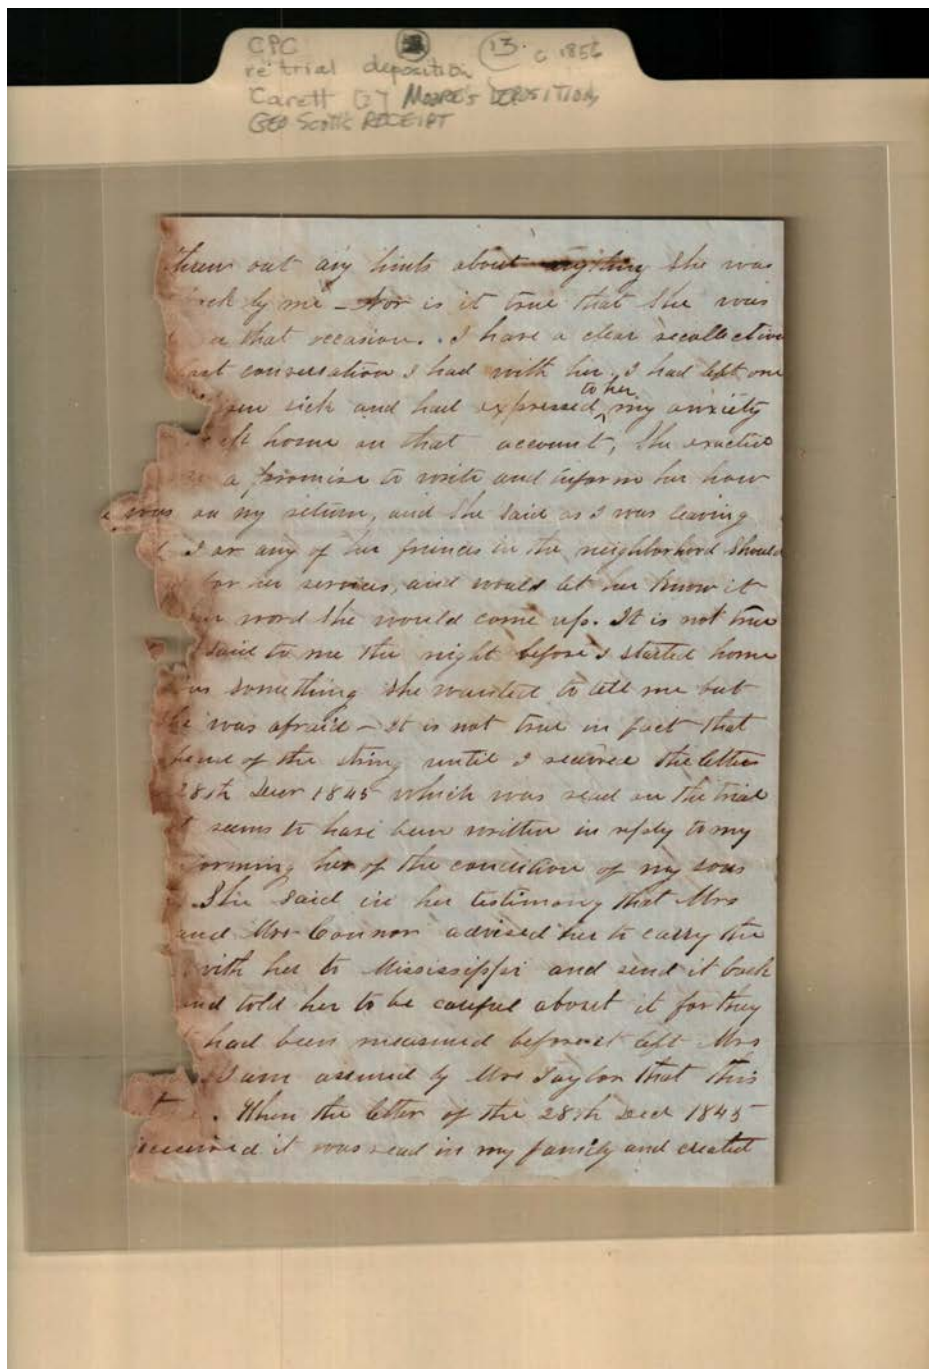 CPC 13. c 1856
re trial deposition
Carett MOORE'S DEPOSITION,
GEO SCOTT'S RECEIPT
out any hints about anything she was
by me - Nor is it true that she was
that occasion. I have a clear recollection
conversation I had with her, I had left one
sick and had expressed to her my anxiety
home on that account, She exacted
a promise to write and inform her how
was on my return, and she said as I was leaving
I or any of her friends in the neighborhood should
for her services, and would let her know it
word she would come up. It is not true
said to me the night before I started home
something she wanted to tell me but
he was afraid - It is not true in fact that
of the thing until I received the letter
28th Decr 1845 which was read on the trial
seems to have been written in reply to my
orming her of the condition of my sons
She said in her testimony that Mrs
and Mrs Connor advised her to carry the
with her to Mississippi and send it back
and told her to be careful about it for they
had been measured before it left Mrs
I am assured by Mrs Taylor that this
. When the letter of the 28th Decr 1845
received it was read in my family and created